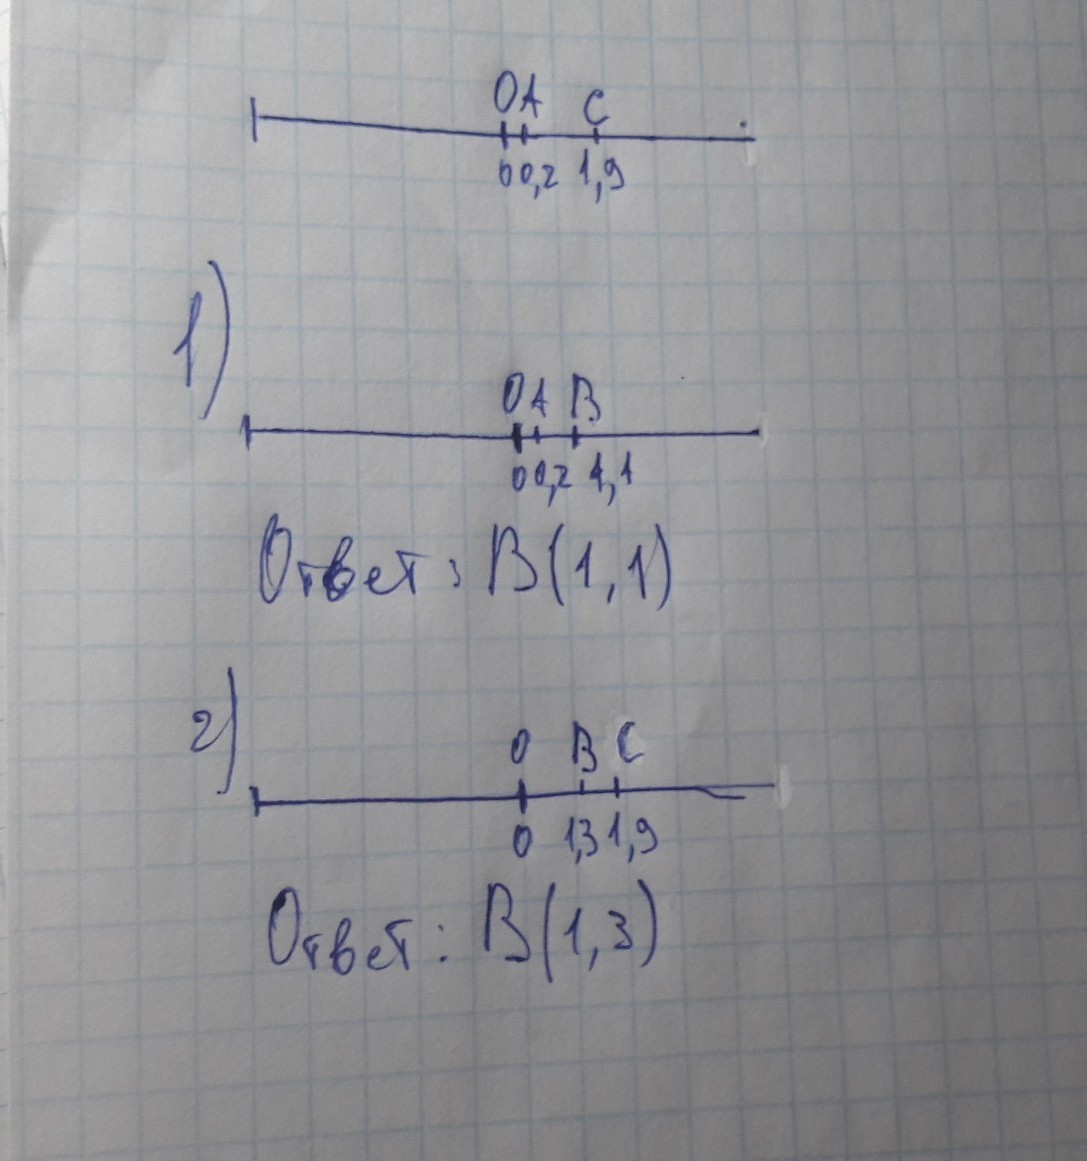 О А С
0 0,2 1,9
1)
О А В
0 0,2 1,1
Ответ: В(1,1)
2)
О В С
0 1,3 1,9
Ответ: В(1,3)